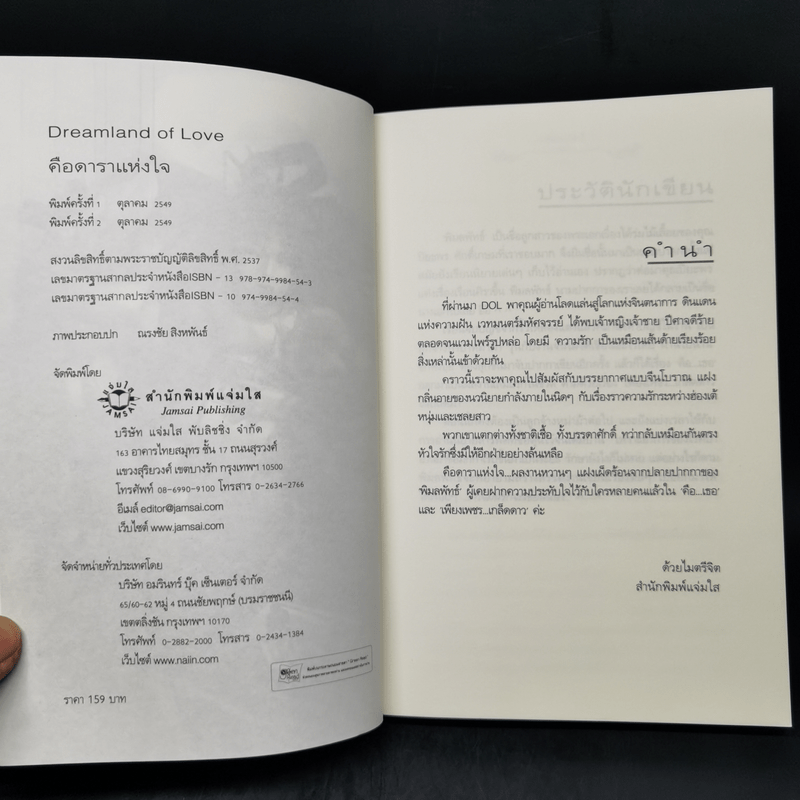 Dreamland of Love
คือดาราแห่งใจ
พิมพ์ครั้งที่ 1 ตุลาคม 2549
พิมพ์ครั้งที่ 2 ตุลาคม 2549
สงวนลิขสิทธิ์ตามพระราชบัญญัติลิขสิทธิ์ พ.ศ. 2537
เลขมาตรฐานสากลประจำหนังสือISBN - 13 978-974-9984-54-3
เลขมาตรฐานสากลประจำหนังสือISBN - 10 974-9984-54-4
ภาพประกอบปก ณรงชัย สิงหพันธ์
จัดพิมพ์โดย
แจ่มใส
JAMSAI
สำนักพิมพ์แจ่มใส
Jamsai Publishing
บริษัท แจ่มใส พับลิชชิ่ง จำกัด
163 อาคารไทยสมุทร ชั้น 17 ถนนสุรวงศ์
แขวงสุริยวงศ์ เขตบางรัก กรุงเทพฯ 10500
โทรศัพท์ 08-6990-9100 โทรสาร 0-2634-2766
อีเมล์ editor@jamsai.com
เว็บไซต์ www.jamsai.com
จัดจำหน่ายทั่วประเทศโดย
บริษัท อมรินทร์ บุ๊ค เซ็นเตอร์ จำกัด
65/60-62 หมู่ 4 ถนนชัยพฤกษ์ (บรมราชชนนี)
เขตตลิ่งชัน กรุงเทพฯ 10170
โทรศัพท์ 0-2882-2000 โทรสาร 0-2434-1384
เว็บไซต์ www.naiin.com
ราคา 159 บาท
ประวัตินักเขียน
คำนำ
ที่ผ่านมา DOL พาคุณผู้อ่านโลดแล่นสู่โลกแห่งจินตนาการ ดินแดน
แห่งความฝัน เวทมนตร์มหัศจรรย์ ได้พบเจ้าหญิงเจ้าชาย ปีศาจดีร้าย
ตลอดจนแวมไพร์รูปหล่อ โดยมี ‘ความรัก’ เป็นเหมือนเส้นด้ายเรียงร้อย
สิ่งเหล่านั้นเข้าด้วยกัน
คราวนี้เราจะพาคุณไปสัมผัสกับบรรยากาศแบบจีนโบราณ แฝง
กลิ่นอายของนวนิยายกำลังภายในนิดๆ กับเรื่องราวความรักระหว่างฮ่องเต้
หนุ่มและเชลยสาว
พวกเขาแตกต่างทั้งชาติเชื้อ ทั้งบรรดาศักดิ์ ทว่ากลับเหมือนกันตรง
หัวใจรักซึ่งมีให้อีกฝ่ายอย่างล้นเหลือ
คือดาราแห่งใจ...ผลงานหวานๆ แฝงเผ็ดร้อนจากปลายปากกาของ
‘พิมลพัทธ์’ ผู้เคยฝากความประทับใจไว้กับใครหลายคนแล้วใน ‘คือ...เธอ’
และ ‘เพียงเพชร...เกล็ดดาว’ ค่ะ
ด้วยไมตรีจิต
สำนักพิมพ์แจ่มใส